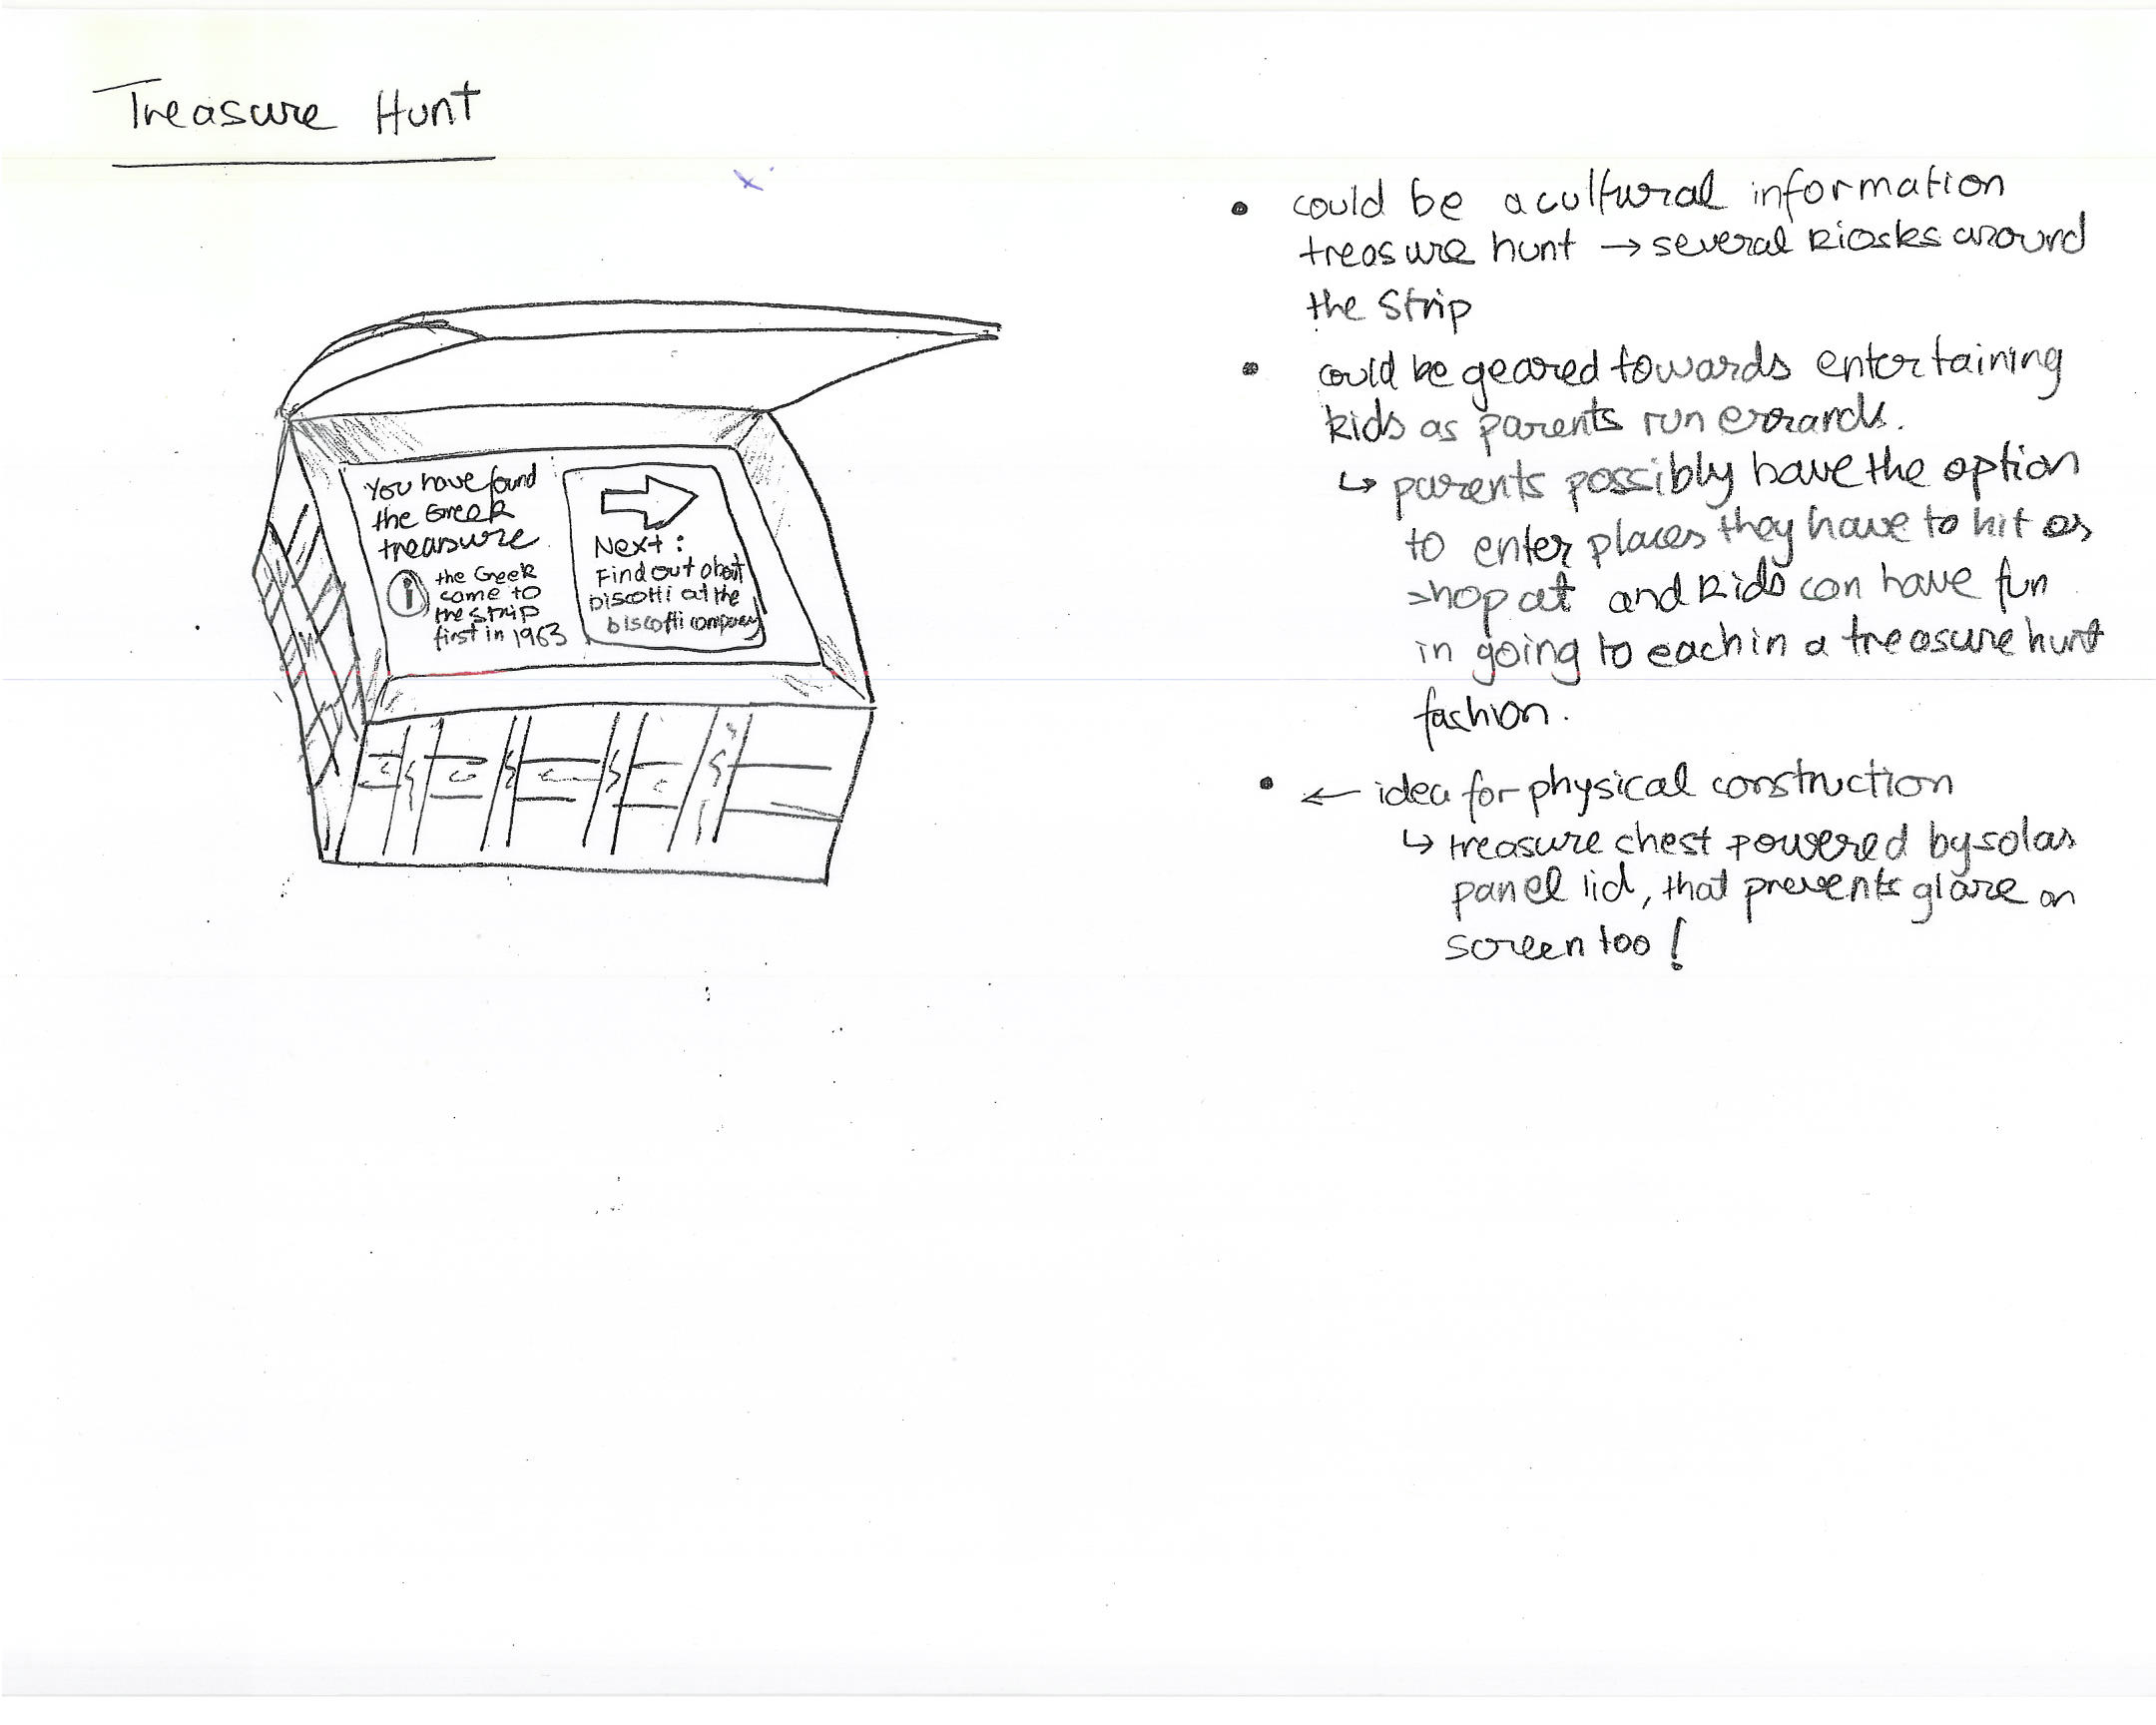 Treasure Hunt
You have found
the Greek
treasure
i
the Greek
came to
the strip
first in 1963
Next:
Find out about
biscotti at the
biscotti company
• could be a cultural information
treasure hunt → several kiosks around
the Strip
• could be geared towards entertaining
kids as parents run errands.
↳ parents possibly have the option
to enter places they have to hit or
shop at and kids can have fun
in going to each in a treasure hunt
fashion.
• ← idea for physical construction
↳ treasure chest powered by solar
panel lid, that prevents glare on
screen too!